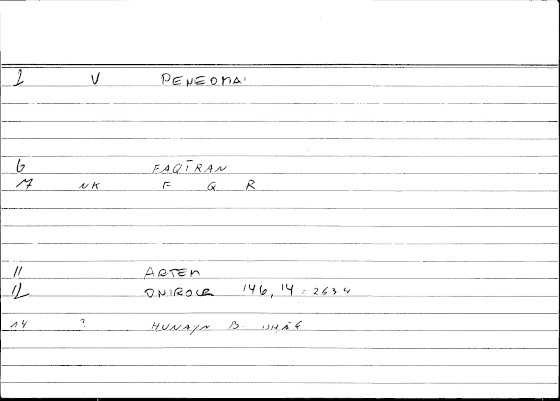 1 V PENEOMAI
6 FAQĪRAN
7 NK F Q R
11 ARTEM
12 ONIROCR 146, 14 = 263 4
14 ? HUNAYN B. ISHĀQ